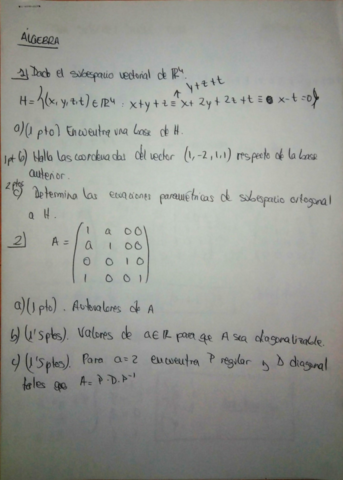 ÁLGEBRA
1) Dado el subespacio vectorial de ℝ4.
y+z+t
H={(x,y,z,t)∈ℝ4. x+y+t = x+2y+2z+t = x-t=0}
a)(1 pto) Encuentra una base de H.
1pt b) Halla las coordenadas del vector (1,-2,1,1) respecto de la base
anterior.
2 ptos c) Determina las ecuaciones paramétricas de subespacio ortogonal
a H.
2) A = (1 a 0 0
a 1 0 0
0 0 1 0
1 0 0 1)
a)(1 pto). Autovalores de A
b)(1'5 ptos). Valores de a∈ℝ para que A sea diagonalizable.
c)(1'5 ptos). Para a=2 encuentra P regular y D diagonal
tales que A = P·D·P⁻¹